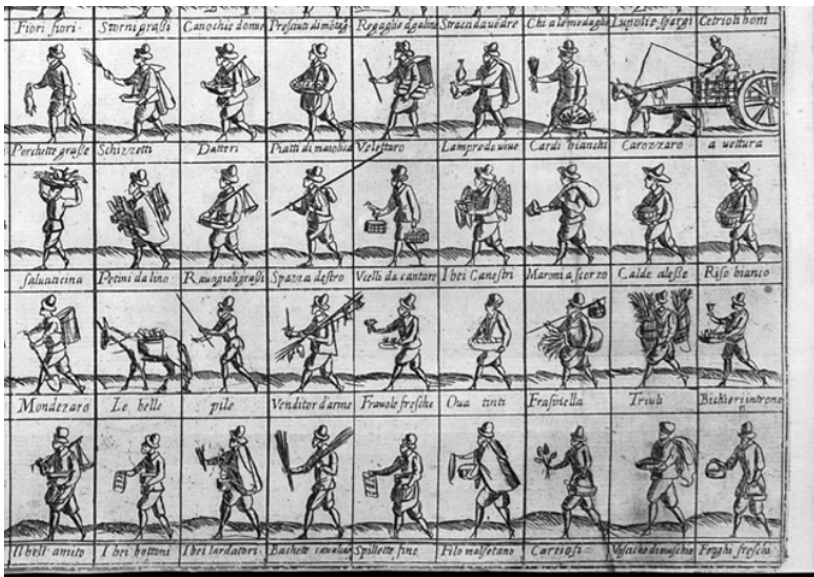 Fiori fiori· Storni graßi Canochie donne Presciuti di mōtag Regaglie d galine Stracci da vēdre Chi a le medaglie Lupoli e spargi Cetrioli boni
Porchette graße Schizzetti Datteri Piatti di maiolica Velettaro Lamprede uiue Cardi bianchi Carozzaro a vettura
Saluaticina Petini da lino· Rauugioli graßi Spazza destro Vcelli da cantare I bei Canestri Maroni a scorzo Calde aleße Riso bianco
Mondezaro Le belle pile Venditor d'arme Frauole fresche Oua tinti Frasviella Triuli Bichieri introno
Il bell' amito I bei bottoni I bei lardatori· Bachete Spillette fine Filo malfetano Carciofi· Fonghi freschi